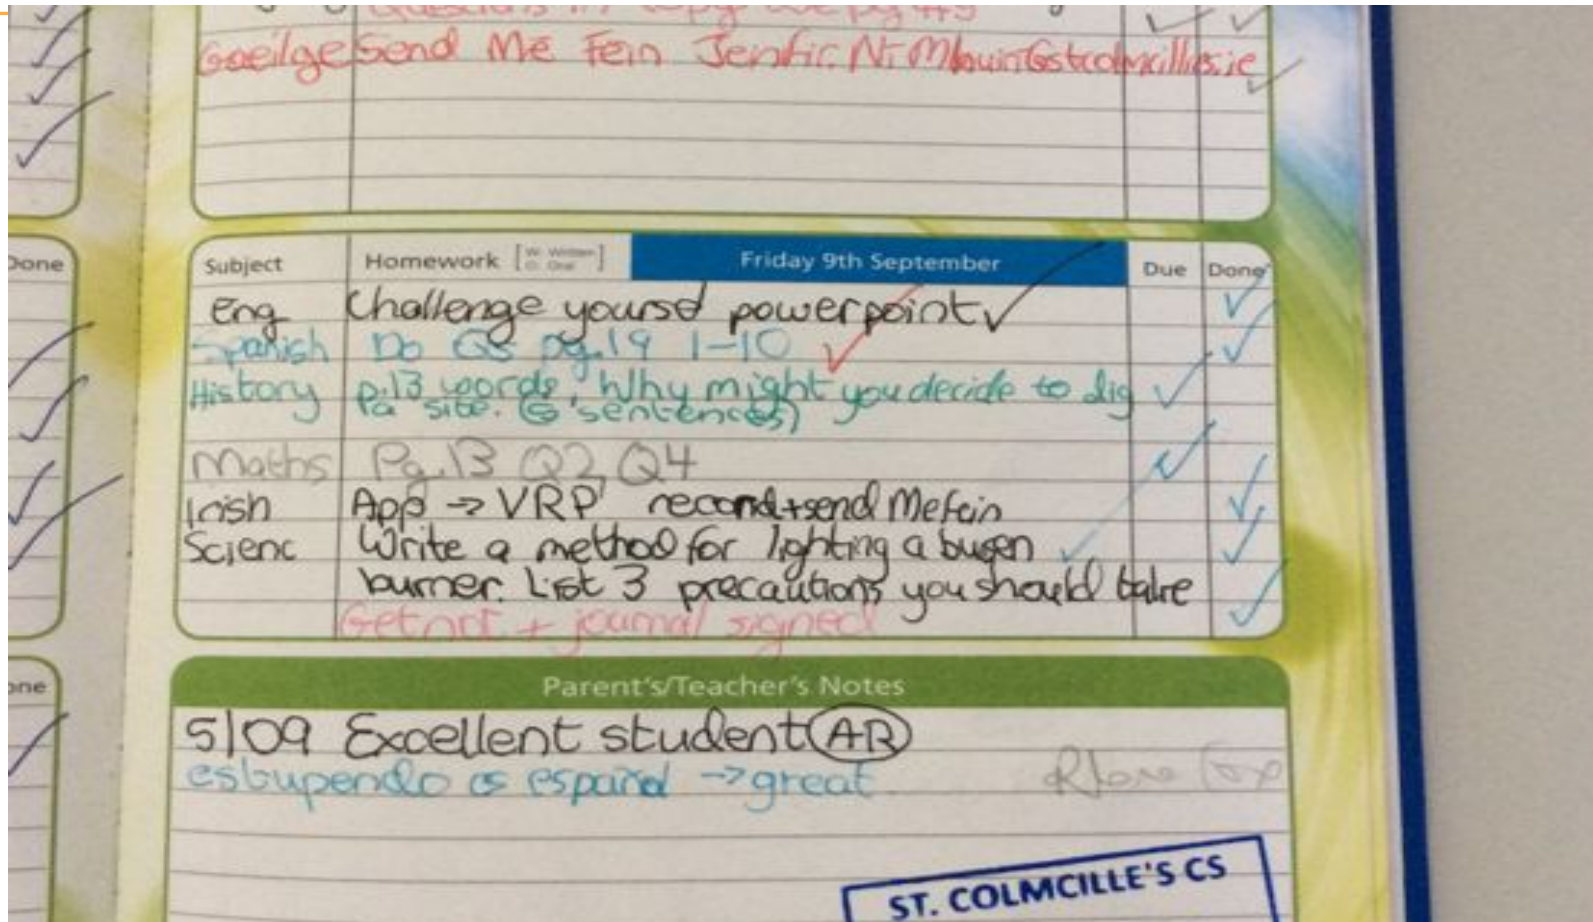 Questions in copy
Gaeilge Send Me Fein
Done
Subject Homework [W: Written O: Oral] Friday 9th September Due Done
Eng Challenge yourself powerpoint
Spanish Do Qs pg.19 1-10
History p.13 words, Why might you decide to dig
a site. sentences)
Maths Pg.13 Q2, Q4
Irish App → VRP record+send Mefein
Scienc Write a method for lighting a busen
burner. List 3 precautions you should take
Get + journal signed
one
Parent's/Teacher's Notes
5/09 Excellent student AR
estupendo es español → great
ST. COLMCILLE'S CS